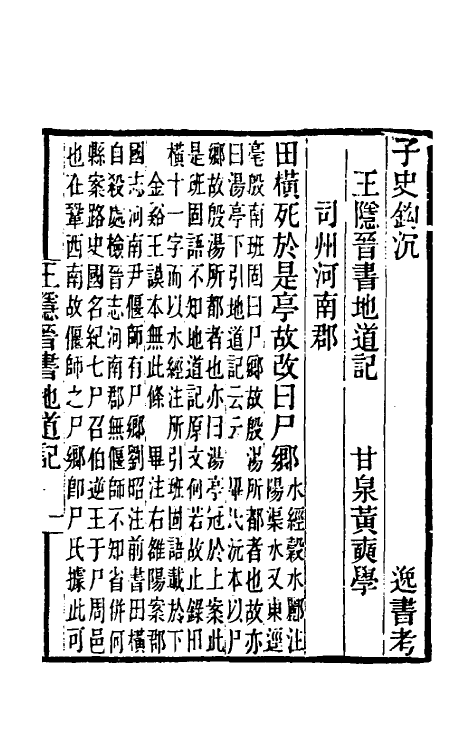 子史鈎沉 逸書考
王隱晉書地道記 甘泉黃奭學
司州河南郡
田橫死於是亭故改曰尸鄉
水經穀水酈注
陽渠水又東逕
亳殷南班固曰尸鄉故殷湯所都者也故亦
曰湯亭下引地道記云云 畢氏沅本以尸
鄉故殷湯所都者也亦曰湯亭冠於上案此
是班固語不知地道記原文何若故止錄田
橫十一字而以水經注所引班固語載於下
金谿王謨本無此條 畢注右雒陽案郡
國志河南尹偃師有尸鄉劉昭注前書田橫
自殺處檢晉志河南郡無偃師不知省併何
縣案路史國名紀七尸召伯逆王于尸周邑
也在鞏西南故偃師之尸鄉卽尸氏據此可
王隱晉書地道記 一